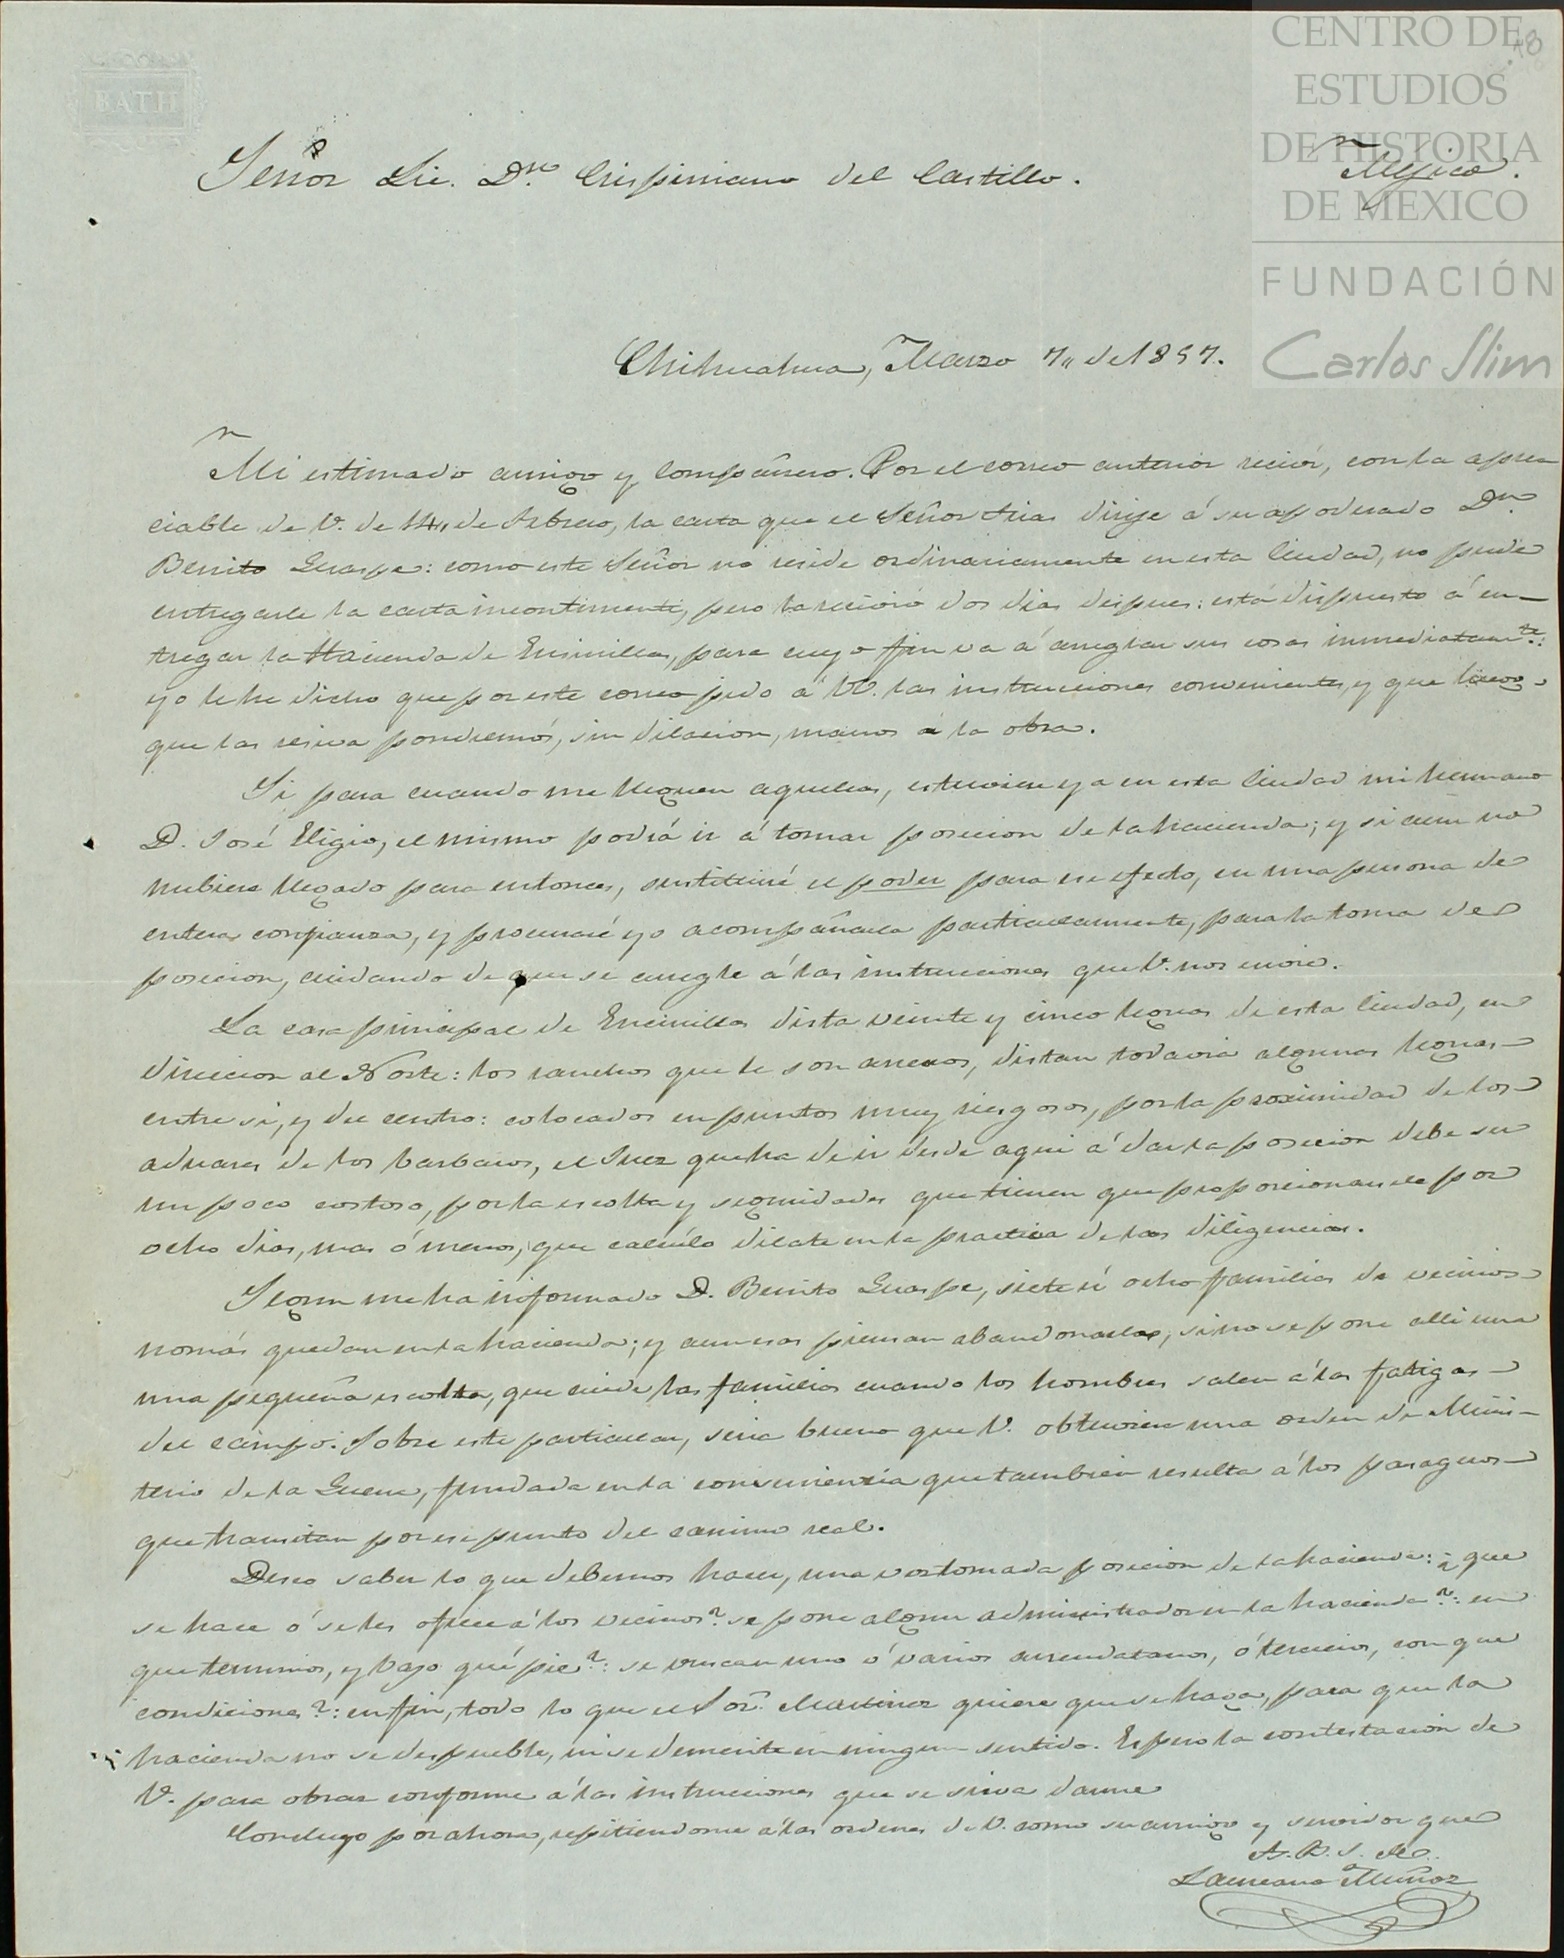 CENTRO DE
ESTUDIOS
DE HISTORIA
DE MEXICO
FUNDACIÓN
Carlos Slim
18
BATH
Señor Lic. Dn. Crispiniano del Castillo.
Mejico.
Chihuahua, Marzo 7,, de 1857.
Mi estimado amigo y compañero. Por el correo anterior reciví, con la apre
ciable de V. de 14,, de Febrero, la carta que el Señor Frias dirije á su apoderado Dn.
Benito Guaspe: como este Señor no reside ordinariamente en esta Ciudad, no pude
entregarle la carta incontinenti, pero la recivió dos dias despues: está dispuesto á en-
tregar la Hacienda de Ensinillas, para cuyo fin va á arreglar sus cosas inmediatamte.:
yo le he dicho que por este correo pido á V. las instrucciones convenientes, y que luego
que las reciva pondremos, sin dilacion, manos á la obra.
Si para cuando me lleguen aquellas, estuviere ya en esta Ciudad mi hermano
D. José Eligio, el mismo podrá ir á tomar posecion de la hacienda; y si aun no
hubiere llegado para entonces, sustituiré el poder para ese efecto, en una persona de
entera confianza, y procuraré yo acompañarla particularmente, para la toma de
posecion, cuidando de que se arregle á las instrucciones que V. nos envie.
La casa principal de Encinillas dista veinte y cinco leguas de esta Ciudad, en
direccion al Norte: los ranchos que le son anexos, distan todavia algunas leguas
entre si, y del centro: colocados en puntos muy riesgosos, por la proximidad de los
aduares de los barbaros, el Juez que ha de ir desde aqui á dar la posecion debe ser
un poco costoso, por la escolta y seguridades que tienen que proporcionarsele por
ocho dias, mas ó menos, que calculo dilate en la practica de las diligencias.
Segun me ha informado D. Benito Guaspe, siete ú ocho familias de vecinos
nomás quedan en la hacienda; y aun esas piensan abandonarla, si no se pone alli una
una pequeña escolta, que cuide las familias cuando los hombres salen á las fatigas
del campo. Sobre este particular, seria bueno que V. obtuviera una orden de Minis-
terio de la Guerra, fundada en la conveniencia que tambien resulta á los pasageros
que transitan por ese punto del camino real.
Deseo saber lo que debemos hacer, una vez tomada posecion de la hacienda: ¿que
se hace ó se les ofrece á los vecinos? se pone algun administrador en la hacienda?: en
que terminos, y bajo qué pie?: se buscan uno ó varios arrendatarios, ó tercieros, con que
condiciones?: en fin, todo lo que el Sor. Martinez quiere que se haga, para que la
hacienda no se despueble, ni se demerite en ningun sentido. Espero la contestacion de
V. para obrar conforme á las instrucciones que se sirva darme
Concluyo por ahora, repitiendome á las ordenes de V. como su amigo y servidor que
A. B. S. M.
Laureano Muñoz